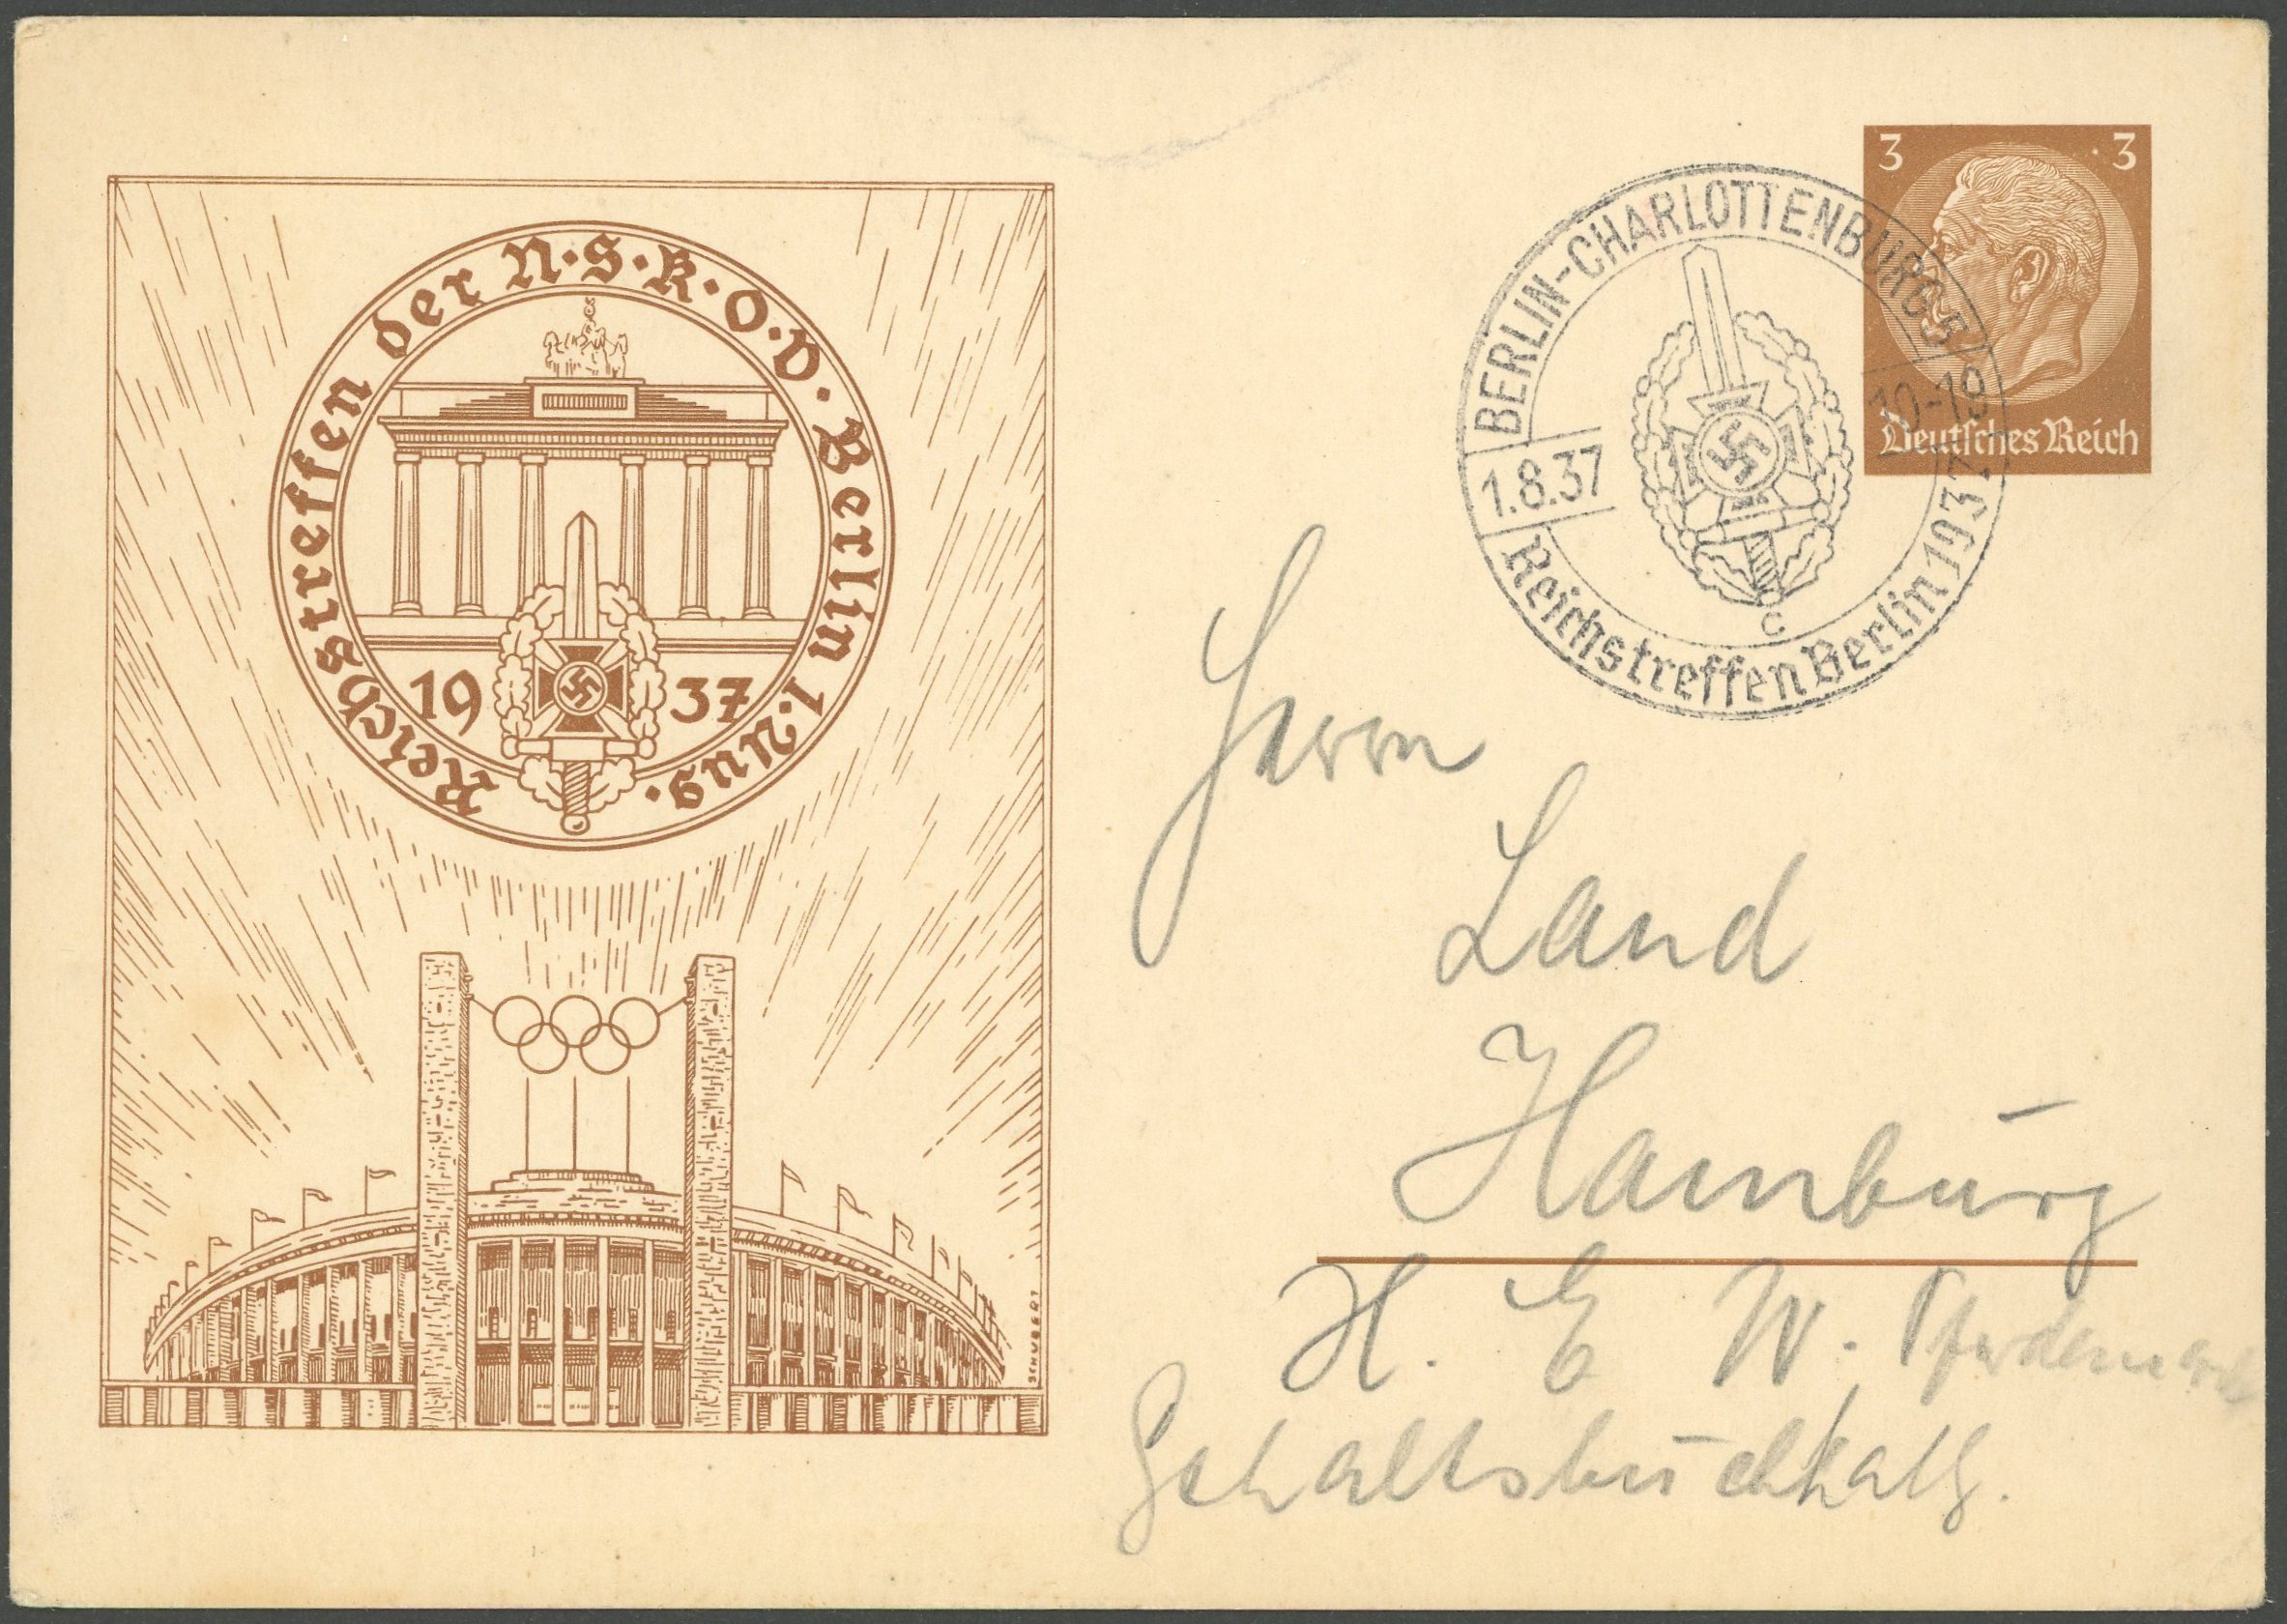 Reichstreffen der N.S.K.O.V. Berlin 1. Aug.
1937
SCHUBERT
3 3
Deutsches Reich
BERLIN-CHARLOTTENBURG 5
1.8.37 10-19
c
Reichstreffen Berlin 1937
Herrn
Land
Hamburg
H. E W. Pferdemarkt
Gehaltsbuchhaltg.